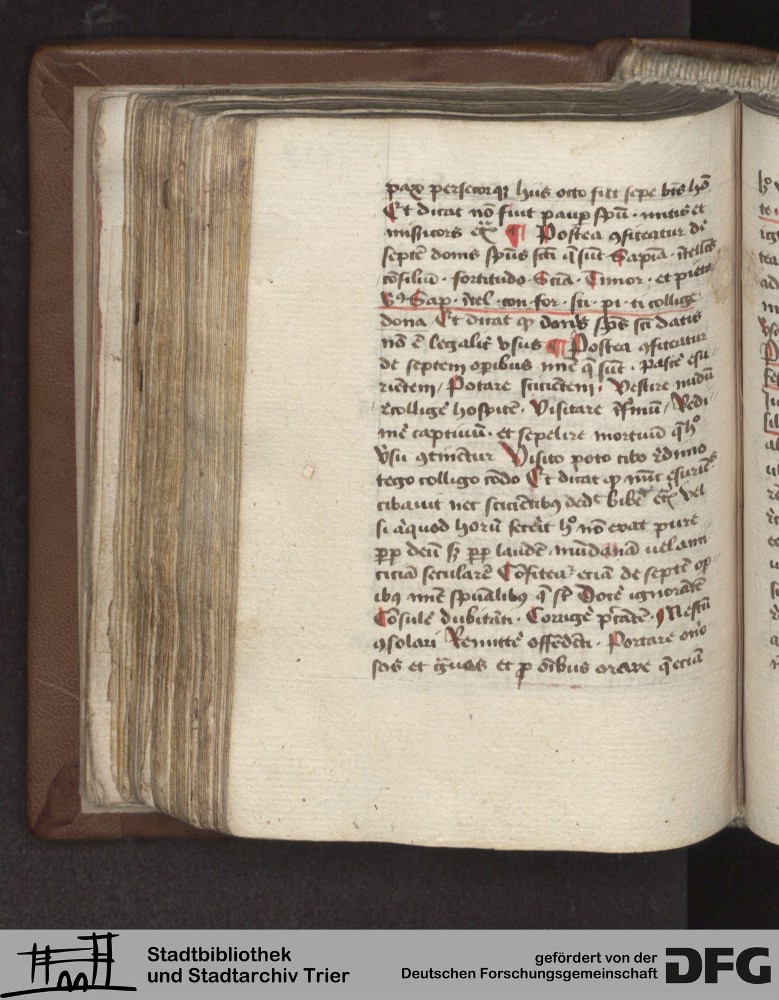 pax persecorqꝫ hijs octo fiet sepe btis hō
Et dicat nō fuit paup spū · mitis et
misericors etc̄ ¶ Postea ꝯfiteatur de
septē donis spūs sc̄ti q̄ sūt · Sapīa · ītellcūs
cōsiliū · fortitudo · Sciā · Timor · et pietas
Vꝰ Sap · ītel · con · for · sci · pi · ti collige
dona Et dicat qp donis spūs sc̄i datis
nō ē legalit vsus ¶ Postea ꝯfiteatur
de septem opibus mīe q̄ sūt · Pascē esu
rientem / Potare sicientem · Vestire nudū
Recolligē hospitē · Visitare īfirmū / Redi
mē captiuū · et sepelire mortuū q̄ hͦ
vsu ꝯtinētur Visito poto cibo redimo
tego colligo cōdo Et dicat qp nūc esuriētes
cibauit nec scicientibꝫ dedͭ bibē etc̄ vel
si aliquod horū fecerit hͦ nō erat pure
ꝓpꝑ deū sꝫ ꝓpꝑ laudē · mūdanā uel ami
ciciā secularē Cōfiteaͬ eciā de septē op
ibꝫ mīe spūalibꝫ q̄ sūt Docē ignorātē
Cōsule dubitāti · Corrigē pctātē · Mestū
ꝯsolari Remittē offēdēti · Portare one
sos et gͣues et ꝓ ōibus orare q̄ eciā
Stadtbibliothek
und Stadtarchiv Trier
gefördert von der
Deutschen Forschungsgemeinschaft
DFG